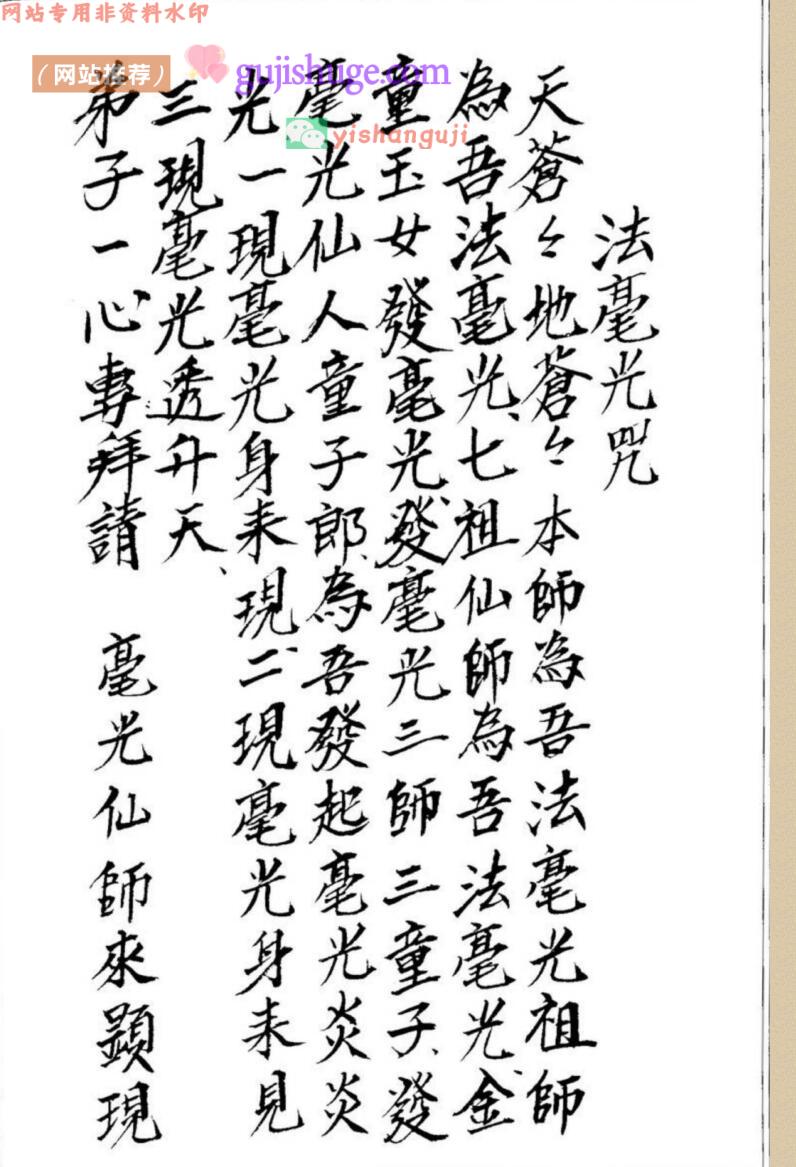 网站专用非资料水印
（网站推荐）
gujishuge.com
yishanguji
法毫光咒
天蒼々地蒼々本師為吾法毫光祖師
為吾法毫光、七祖仙師為吾法毫光、金
童玉女發毫光、發毫光三師三童子、發
毫光仙人童子郎、為吾發起毫光炎炎
光一現毫光身未現、二現毫光身未見
三現毫光透升天、
弟子一心專拜請　毫光仙師來顕現